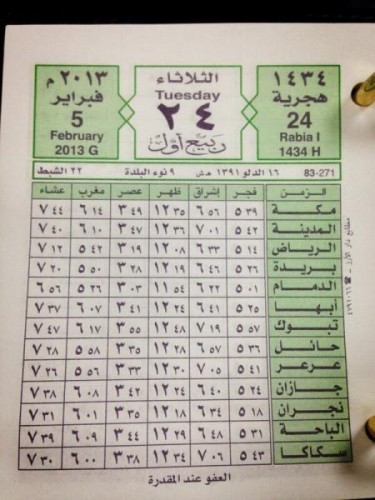 ١٤٣٤
هجرية
24
Rabia I
1434 H
الثلاثاء
Tuesday
٢٤
ربيع أول
٢٠١٣ م
فبراير
5
February
2013 G
83-271 ١٦ الدلو ١٣٩١ هـ ش ٩ نوء البلدة ٢٢ الشبط
الزمن فجر إشراق ظهر عصر مغرب عشاء
مكة ٥ ٣٩ ٦ ٥٦ ١٢ ٣٥ ٣ ٤٩ ٦ ١٤ ٧ ٤٤
المدينة ٥ ٤٢ ٧ ٠١ ١٢ ٣٦ ٣ ٤٧ ٦ ١٠ ٧ ٤٠
الرياض ٥ ١٤ ٦ ٣٣ ١٢ ٠٨ ٣ ١٩ ٥ ٤٢ ٧ ١٢
بريدة ٥ ٢٦ ٦ ٤٦ ١٢ ١٩ ٣ ٢٨ ٥ ٥٠ ٧ ٢٠
الدمام ٥ ٠١ ٦ ٢٢ ١١ ٥٤ ٣ ٠٣ ٥ ٢٦ ٦ ٥٦
أبها ٥ ٢٥ ٦ ٤١ ١٢ ٢٤ ٣ ٤١ ٦ ٠٧ ٧ ٣٧
تبوك ٥ ٥٧ ٧ ١٩ ١٢ ٤٨ ٣ ٥٥ ٦ ١٧ ٧ ٤٧
حائل ٥ ٣٦ ٦ ٥٧ ١٢ ٢٨ ٣ ٣٥ ٥ ٥٨ ٧ ٢٨
عرعر ٥ ٤١ ٧ ٠٥ ١٢ ٣٠ ٣ ٣٣ ٥ ٥٦ ٧ ٢٦
جازان ٥ ٢٤ ٦ ٤٠ ١٢ ٢٤ ٣ ٤٢ ٦ ٠٨ ٧ ٣٨
نجران ٥ ١٨ ٦ ٣٤ ١٢ ١٨ ٣ ٣٥ ٦ ٠١ ٧ ٣١
الباحة ٥ ٣١ ٦ ٤٨ ١٢ ٢٩ ٣ ٤٤ ٦ ٠٩ ٧ ٣٩
سكاكا ٥ ٤٣ ٧ ٠٦ ١٢ ٣٤ ٣ ٣٨ ٦ ٠٠ ٧ ٣٠
العفو عند المقدرة